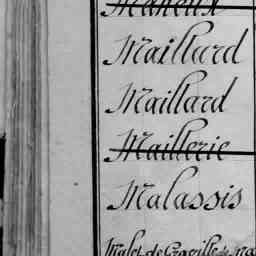 Maheux
Maillard
Maillard
Maillerie
Malassis
Malet de Graville